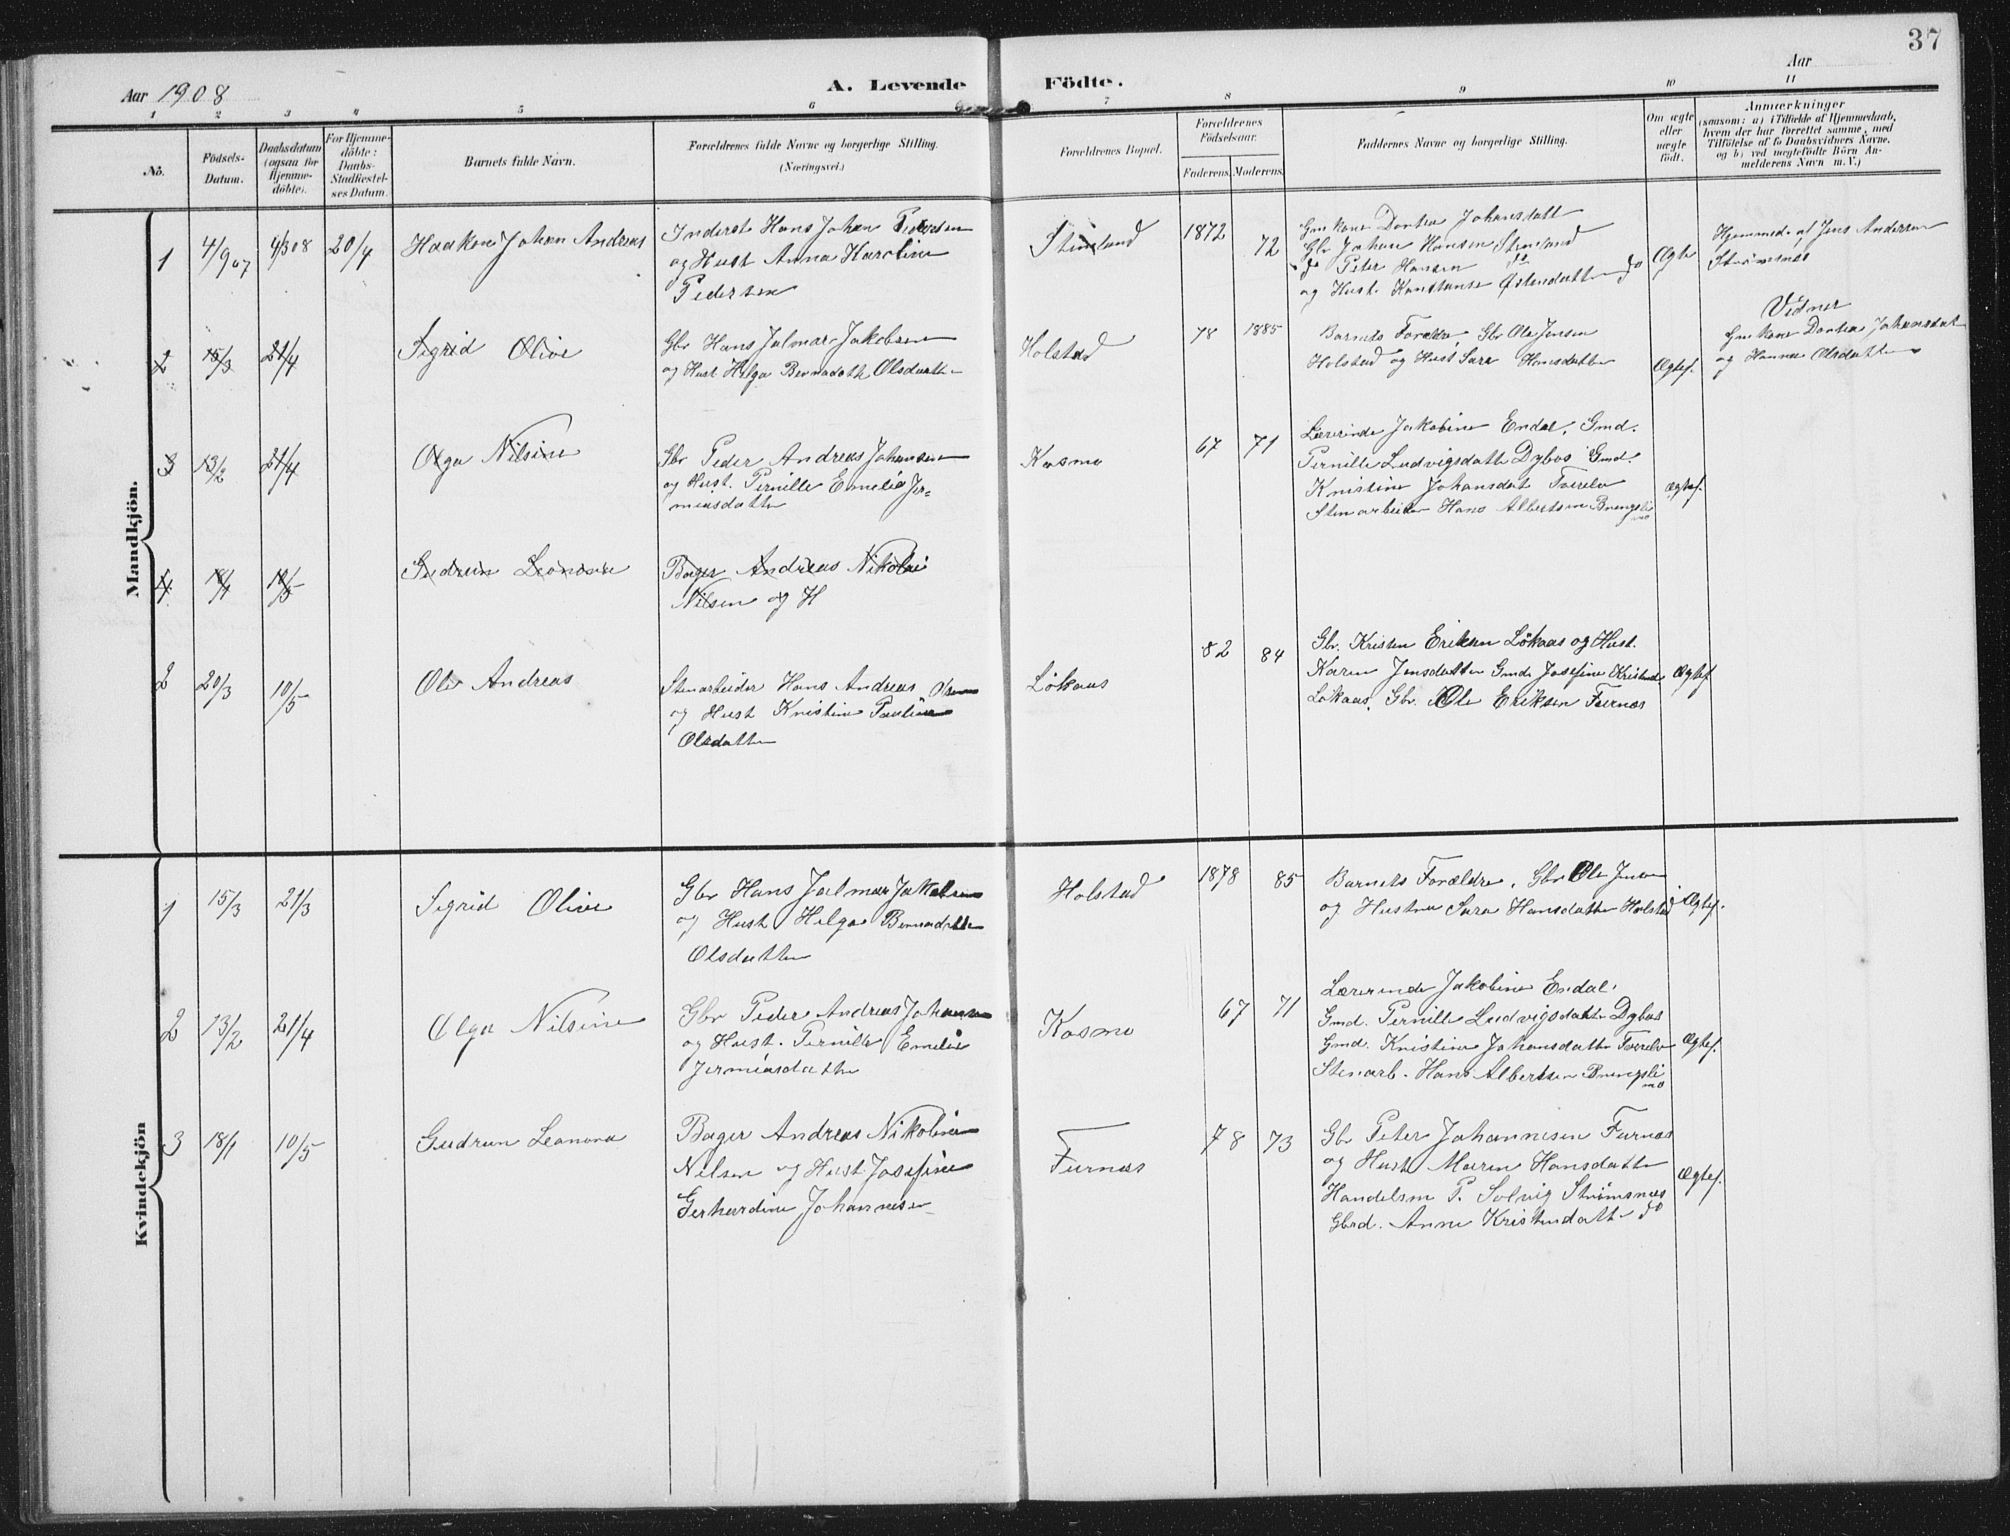 37
Aar 1908
A. Levende Födte.
Aar
1 2 3 4 5 6 7 8 9 10 11
No.
Födsels-
Datum.
Daabsdatum
(ogsaa for
Hjemme-
döbte).
For Hjemme-
döbte:
Daabs-
Stadfæstel-
ses Datum.
Barnets fulde Navn.
Forældrenes fulde Navne og borgerlige Stilling.
(Næringsvei.)
Forældrenes Bopæl.
Forældrenes
Födselsaar.
Faderens. Moderens.
Faddernes Navne og borgerlige Stilling.
Om ægte
eller
uægte
födt.
Anmærkninger
(saasom: a) i Tilfælde af Hjemmedaab,
hvem der har forrettet samme, med
Tilföielse af to Daabsvidners Navne,
og b) ved uægtefödte Börn An-
melderens Navn m. V.)
Mandkjön.
1 4/9 07 4/3 08 20/4 Haakon Johan Andreas
Inderst Hans Johan Pedersen
og Hust Anna Karoline
Pedersen
1872 72
Gmkone Dortea Johansdatt
Gbr Johan Hansen
do Peter Hansen do
og Hust. Konstanse Østensdatter do
Ægte
Hjemmed. af Jens Andersen
Strömsnes
Vidner
Gmkone Dortea Johansdat
og Hanna Olsdatter
2 15/3 21/4 Sigrid Olive
Gbr Hans Jalmar Jakobsen
og Hust Helga Bernadotte Olsdatter
Holstad
78 1885
Barnets Forældre, Gbr Ole Jensen
Holstad og Hust Sara Hansdatter
Ægtef.
3 13/2 21/4 Olga Nilsine
Gbr Peder Andreas Johansen
og Hust. Pernille Emelie Jer=
miasdatter
Kosmo
67 71
Lærerinde Jakobine Endal, Gmd.
Pernille Ludvigsdatter Dybos Gmd.
Kristine Johansdat Tverelv
Stenarbeider Hans Albertsen Bringsli
mo
Ægtef.
4 18/1 10/5 Gudrun Leonora
Bager Andreas Nikolai
Nilsen og H
2 20/3 10/5 Ole Andreas
Stenarbeider Hans Andreas Olsen
og Hust Kristine Pauline
Olsdatter
Lökaas
82 84
Gbr. Kristen Eriksen Lökaas og Hust.
Karen Jensdatter Gmd. Josefine Kristensd
Lökaas, Gbr. Ole Eriksen Tvernæs
Ægtef
Kvindekjön
1 15/3 21/3 Sigrid Olive
Gbr Hans Jalmar Jakobsen
og Hust Helga Bernadotte
Olsdatter
Holstad
1878 85
Barnets Forældre, Gbr Ole Jensen
og Hustru Sara Hansdatter Holstad
Ægtef.
2 13/2 21/4 Olga Nilsine
Gbr Peder Andreas Johansen
og Hust. Pernille Emelie
Jermiasdatter
Kosmo
67 71
Lærerinde Jakobine Endal,
Gmd. Pernille Ludvigsdatter Dybos
Gmd. Kristine Johansdatter Tverelv
Stenarb. Hans Albertsen Bringsli
mo
Ægtef.
3 18/1 10/5 Gudrun Leonora
Bager Andreas Nikolai
Nilsen og Hust Josefine
Gerhardine Johannesen
Furnes
78 73
Gbr Peter Johannesen Furnes
og Hust Maren Hansdatter
Handelsm P. Solvig Strömsnes
Gbrd. Anne Kristensdatter do
Ægtef.